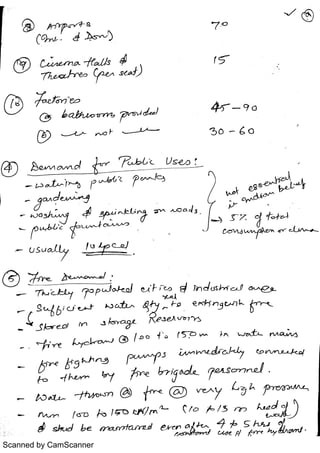 ⑧ Airports 70
(Ins. & Dom)
⑨ Cinema Halls & 15
Theatres (per seat)
⑩ Factories
ⓐ bathrooms provided 45-90
ⓑ — not — 30-60
④ Demand for Public Uses:
- watering public parks
- gardening
- washing & sprinkling on roads.
- public fountains
not essential
in Indian belief
→ 5% of total
consumption or
- usually 10 lpcd
⑤ Fire Demand:
- Thickly populated cities & Industrial area
- Sufficient water qty req to extinguish fire
- stored in storage Reservoirs
- Fire hydrant @ 100 to 150 m in water mains
- fire fighting pumps immediately connected
to them by fire brigade personnel.
- Water thrown @ fire @ very high pressure
- min 100 to 150 kN/m² (10 to 15 m head of water)
& shud be maintained even after 4 to 5 hrs of
constant use of fire hydrant.
Scanned by CamScanner